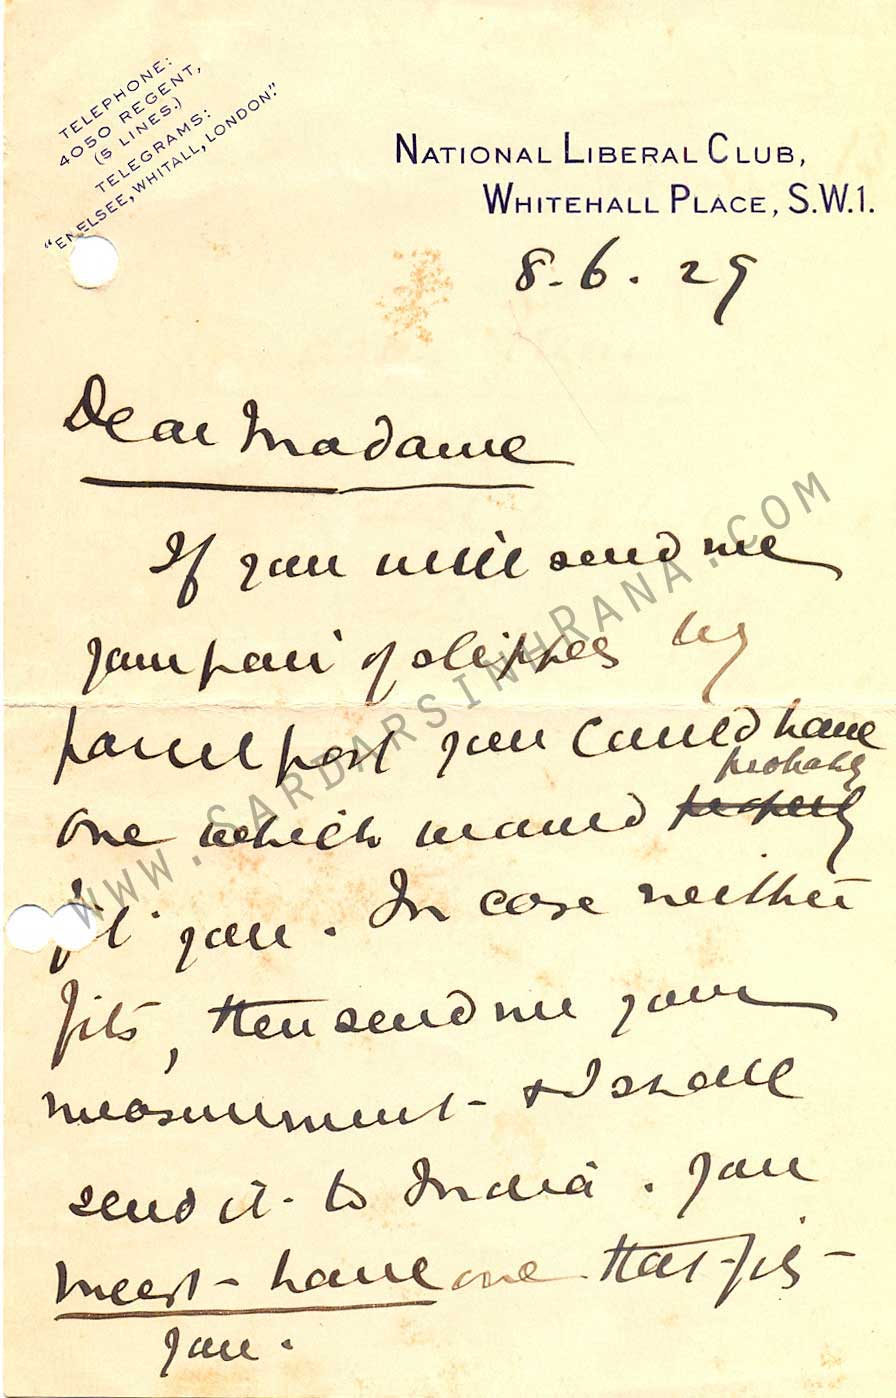 TELEPHONE:
4050 REGENT,
(5 LINES.)
TELEGRAMS:
"ENELSEE, WHITALL, LONDON."
NATIONAL LIBERAL CLUB,
WHITEHALL PLACE, S.W.1.
8.6.29
Dear Madame
If you will send me
your pair of slippers by
parcel post you could have
probably
one which would properly
fit you. In case neither
fits, then send me your
measurement & I shall
send it to India. You
must have one that fits
you.
WWW.SARDARSINHRANA.COM